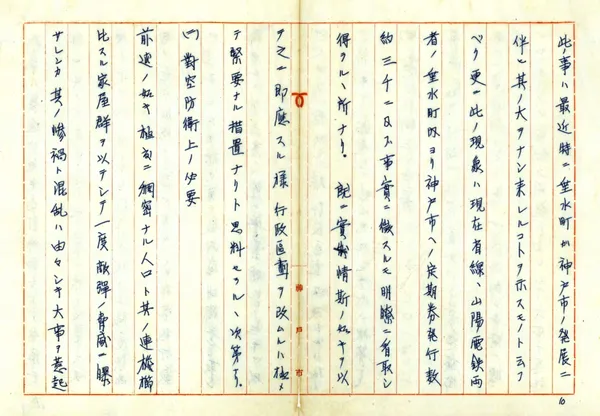 此ノ事ハ最近時ニ垂水町ガ神戸市ノ発展ニ
伴ヒ其ノ大ヲナシ来レルコトヲ示スモノト云フ
ベク更ニ此ノ現象ハ現在省線、山陽電鉄両
者ノ垂水町駅ヨリ神戸市ヘノ定期券発行数
約三千ニ及ブ事実ニ徴スルモ明瞭ニ看取シ
得ラルヽ所ナリ。既ニ実情斯ノ如キヲ以
テ之ニ即應スル様行政区劃ヲ改ムルハ極メ
テ緊要ナル措置ナリト思料セラルヽ次第ナリ。
㈠對空防衛上ノ必要
前述ノ如キ極メテ稠密ナル人口ト其ノ連檐櫛
比スル家屋群ヲ以テシテ一度敵弾ノ脅威ニ曝
サレンカ其ノ惨禍ト混乱ハ由々シキ大事ヲ惹起
神戸市
10